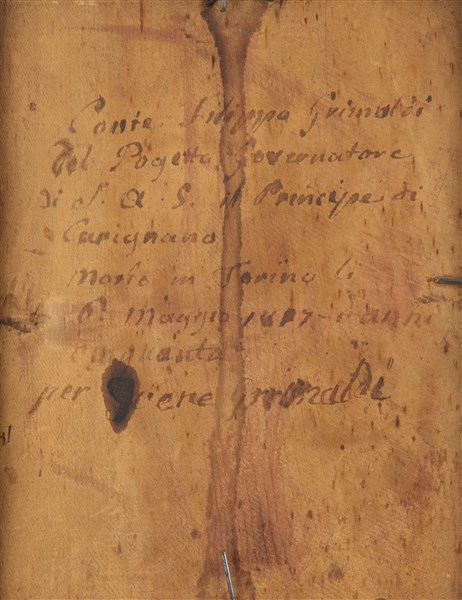 Conte Filippo Grimaldi
del Pogetto Governatore
di S. A. S. il Principe di
Carignano
morto in Torino li
6 Maggio d'anni
Cinquanta
per Irene Grimaldi